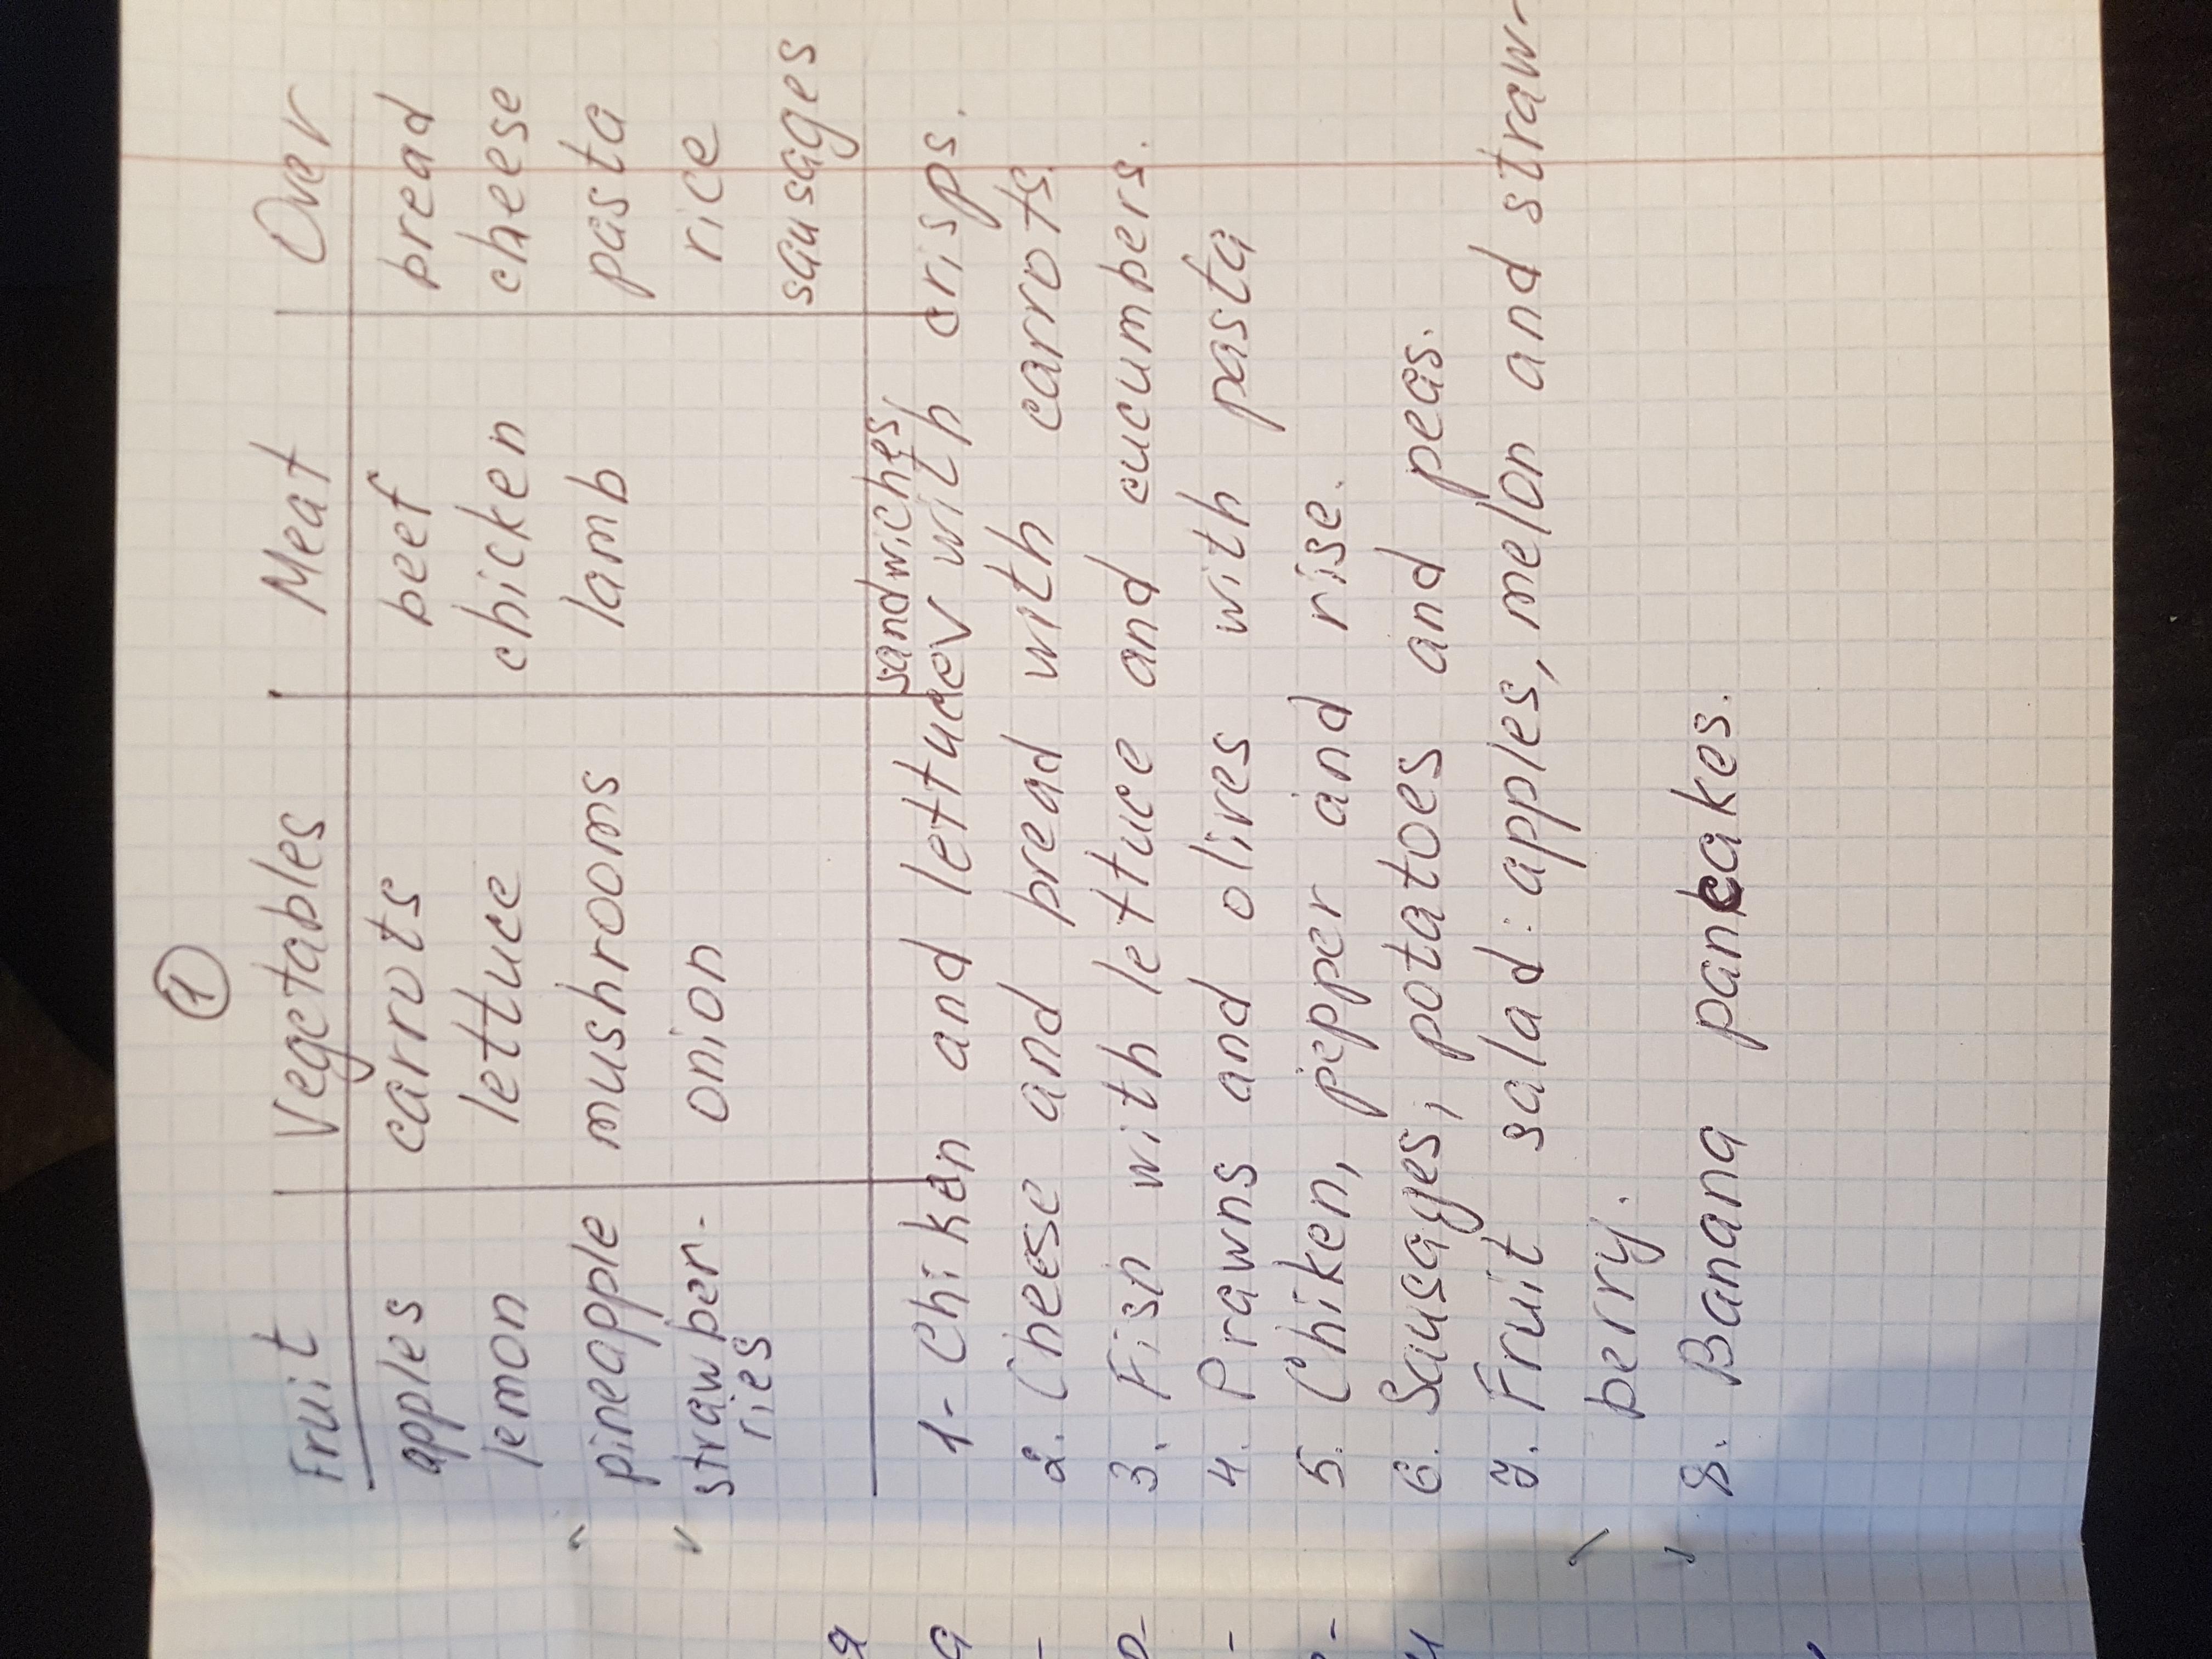 1
Fruit Vegetables Meat Over
apples carrots beef bread
lemon lettuce chicken cheese
pineapple mushrooms lamb pasta
strawber- onion rice
ries sausages
sandwiches
1. Chiken and lettuce v with crisps.
2. Cheese and bread with carrots.
3. Fish with lettuce and cucumbers.
4. Prawns and olives with pasta
5. Chiken, pepper and rise.
6. Sausages, potatoes and peas.
7. Fruit salad: apples, melon and straw-
berry.
8. Banana pancakes.